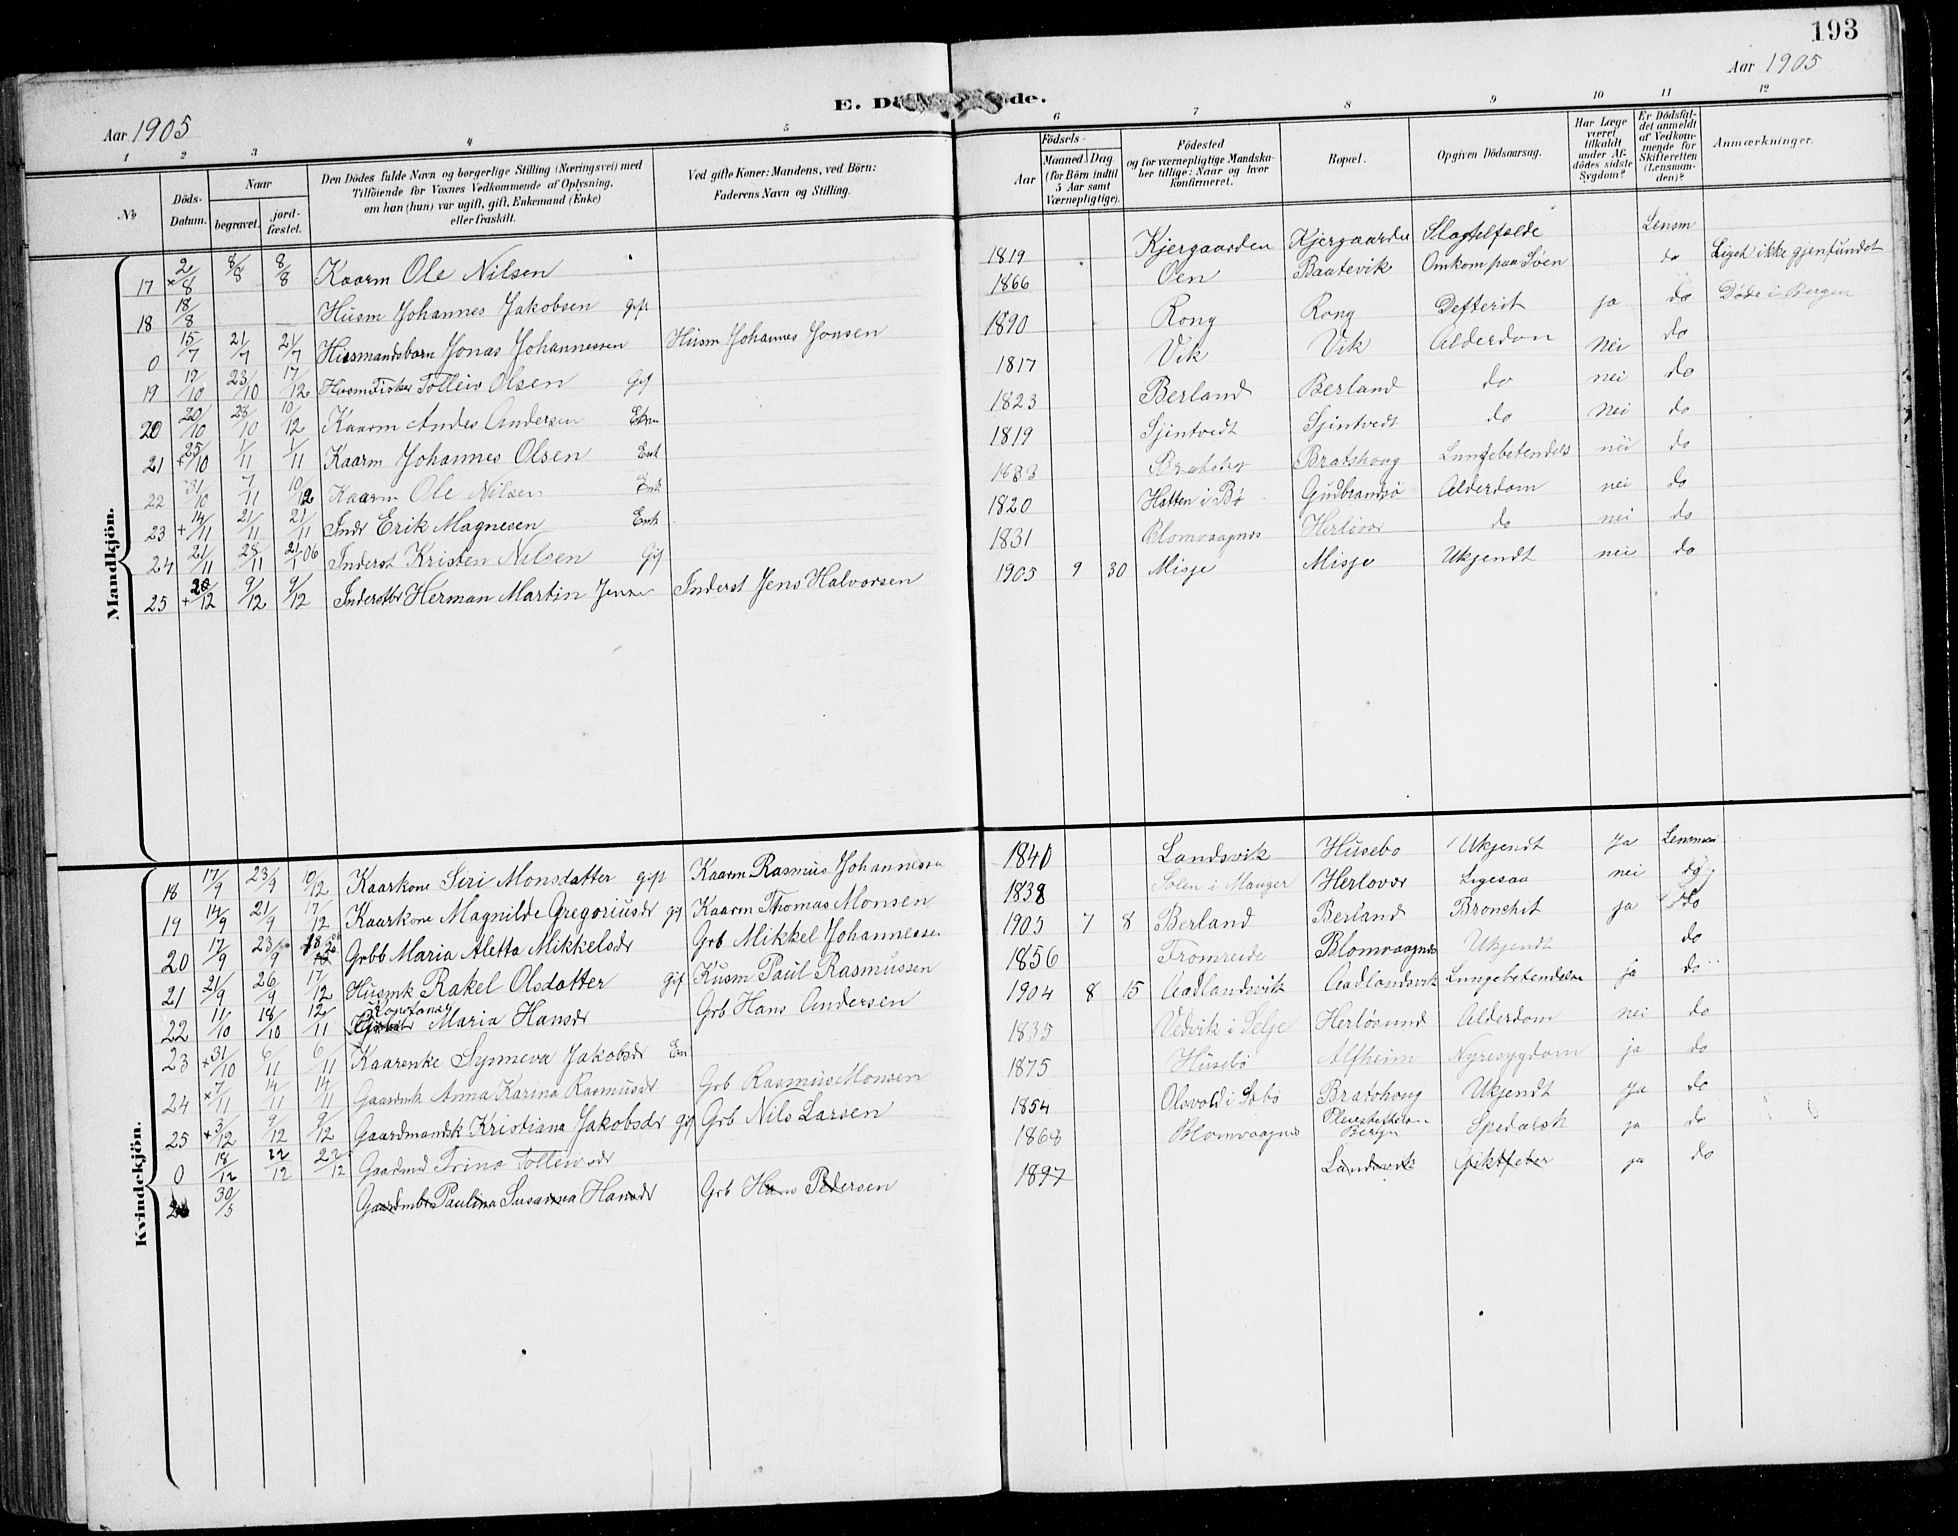 193
Aar 1905
Aar 1905
E. Dö de.
1 2 3 4 5 6 7 8 9 10 11 12
No
Döds-Datum.
Naar
begravet.
jord-fæstet.
Den Dödes fulde Navn og borgerlige Stilling (Næringsvei) med
Tilföiende for Voxnes Vedkommende af Oplysning,
om han (hun) var ugift, gift, Enkemand (Enke)
eller fraskilt.
Ved gifte Koner: Mandens, ved Börn:
Faderens Navn og Stilling.
Födsels-
Aar
Maaned. Dag.
(for Börn indtil
5 Aar samt
Værnepligtige).
Födested
og for værnepligtige Mandska-
ber tillige: Naar og hvor
konfirmeret.
Bopæl.
Opgiven Dödsaarsag.
Har Læge
været
tilkaldt
under Af-
dödes sidste
Sygdom?
Er Dödsfal-
det anmeldt
af Vedkom-
mende for
Skifteretten
(Lensman-
den)?
Anmærkninger.
Mandkjön.
17 × 2/8 8/8 8/8 Kaarm Ole Nilsen 1819 Kjergaarden Kjergaarden Slagtelfælde Lensm
18 18/8 Husm Johannes Jakobsen gift 1866 Öen Baatevik Omkom paa Söen do Liget ikke gjenfundet
0 15/7 21/7 21/7 Husmandsbarn Jonas Johannessen Husm Johannes Jonsen 1890 Rong Rong Defterit ja do Döde i Bergen
19 19/10 23/10 17/12 Husm Fisker Tolleiv Olsen Gif 1817 Vik Vik Alderdom nei do
20 20/10 28/10 10/12 Kaarm Andes Andersen 1823 Berland Berland do nei do
21 + 25/10 1/11 1/11 Kaarm Johannes Olsen Enk 1819 Sjintvedt Sjintvedt do nei do
22 31/10 7/11 10/12 Kaarm Ole Nilsen Enk 1833 Bratshoug Lungebetendels nei do
23 + 14/11 21/11 21/11 Inds Erik Magnesen Enk 1820 Hatten i Bö Gudbrandsö Alderdom nei do
24 21/11 28/11 21/1 06 Inderst Kristen Nilsen Gif 1831 Blomvaagnes Herlövær do nei do
25 + 30/12 9/12 9/12 Inderstbr Herman Martin Jensen Inderst Jens Halvorsen 1905 9 30 Misje Misje Ukjendt nei do
Kvindekjön.
18 17/9 23/9 10/12 Kaarkone Siri Monsdatter gift Kaarm Rasmus Johannessen 1840 Landsvik Husebo Ukjendt Ja Lensman
19 14/9 21/9 17/12 Kaarkone Magnilde Gregoriusdr gif Kaarm Thomas Monsen 1838 Solen i Manger Herlövær Ligesaa nei do
20 17/9 23/9 Grbb Maria Aletta Mikkelsdr Grb Mikkel Johannessen 1905 7 8 Berland Berland Bronchit ja do
21 21/9 26/9 17/12 Husmk Rakel Olsdatter gif Husm Paul Rasmussen 1856 Fromreide Blomvaagnes Ukjendt do
22 11/10 18/10 12/11 Maria Hansdr Grb Hans Andersen 1904 8 15 Aadlandsvik Aadlandsvik Lungebetendelse ja do
23 × 31/10 6/11 6/11 Kaarenke Synneva Jakobsdr En 1835 Vedvik i Selje Herlösund Alderdom nei do
24 × 7/11 14/11 14/11 Gaardmk Anna Karina Rasmusdr Grb Rasmus Monsen 1875 Husebö Alfheim Nyresygdom ja do
25 × 3/12 9/12 9/12 Gaardmandsk Kristiana Jakobsdr gif Grb Nils Larsen 1854 Olsvold i Sæbö Bratshoug Ukjendt Ja do
0 18/12 22/12 22/12 Gaardmd Trina Tolleivsdr 1868 Blomvaagnes Pleiestiftelsen Bergen Spedalsk ja do
26 30/5 Gaardmbr Paulina Susanna Hansdr Grb Hans Pedersen 1897 Landsvik Giktfeber ja do